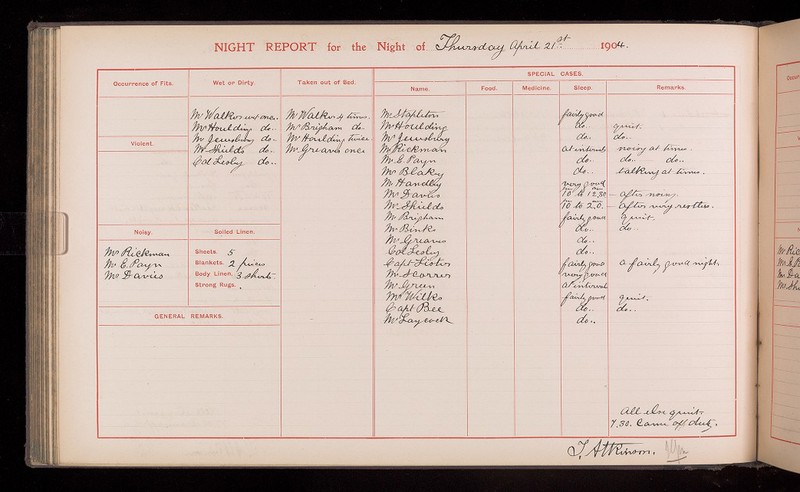 NIGHT REPORT for the Night of Thursday April 21st 1904.
SPECIAL CASES.
Occurrence of Fits.
Wet or Dirty.
Taken out of Bed.
Name.
Food.
Medicine.
Sleep.
Remarks.
Mr Walker wet once.
Mr Houlding do.
Mr Jewsbury do.
Mr Shields do.
Col Lesley do.
Mr Walker 4 times.
Mr Brigham do.
Mr Houlding twice
Mr Greaves once
Violent.
Noisy.
Mr Rickman
Mr E. Payn
Mr Davies
Soiled Linen.
Sheets. 5
Blankets. 2 pieces
Body Linen. 3 shirts
Strong Rugs.
GENERAL REMARKS.
Mr Stapleton fairly good
Mr Houlding do. quiet.
Mr Jewsbury do. do.
Mr Rickman at intervals noisy at times.
Mr E. Payn do. do. do.
Mr Blakey do. talking at times.
Mr Handley very good
Mr Davies 10 to 12.30 after noisy.
Mr Shields 10 to 2.0. after very restless.
Mr Brigham fairly good quiet.
Mr Binks do. do.
Mr Greaves do.
Col Lesley do.
Capt Lister fairly good a fairly good night.
Mr Scorrer very good
Mr Green at intervals
Mr Wilks fairly good quiet.
Capt Bee do. do.
Mr Laycock do.
All else quiet
7.30. Came off duty.
J. Atkinson.